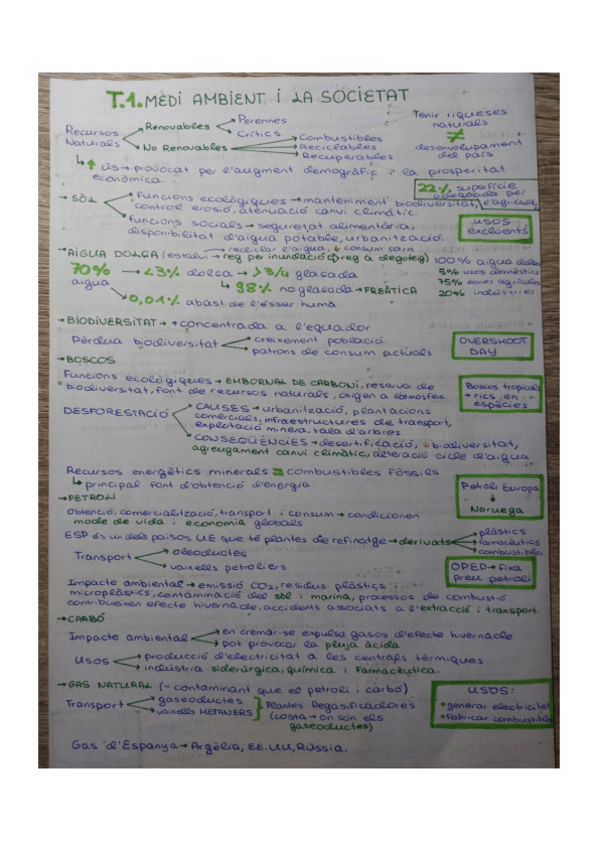 T.1. MEDI AMBIENT I LA SOCIETAT
Recursos Naturals → Renovables → Perennes
→ Crítics
→ No Renovables → Combustibles
→ Reciclables
→ Recuperables
Tenir riqueses naturals
≠
desenvolupament del país
↳ ↑ ús → provocat per l'augment demogràfic i la prosperitat
econòmica
22% superfície
adequada per
l'agricul.
→ SÒL → funcions ecològiques → manteniment biodiversitat,
control erosió, atenuació canvi climàtic.
→ funcions socials → seguretat alimentària,
disponibilitat d'aigua potable, urbanització.
USOS
excloents
→ AIGUA DOLÇA (estalvi → reciclar l'aigua, ↓ consum carn
reg per inundació → reg a degoteig)
70% aigua → <3% dolça → >3/4 glaçada
↳ 98% no glaçada → FREÀTICA
→ 0,01% abast de l'ésser humà
100% aigua dolça
5% usos domèstics
75% zones agrícoles
20% indústries
→ BIODIVERSITAT → + concentrada a l'equador
Pèrdua biodiversitat → creixement població
→ patrons de consum actuals
OVERSHOOT
DAY
→ BOSCOS
Funcions ecològiques → EMBORNAL DE CARBONI, reserva de
biodiversitat, font de recursos naturals, origen a l'atmosfera.
Boscos tropicals
+ rics en
espècies
DESFORESTACIÓ → CAUSES → urbanització, plantacions
comercials, infraestructures de transport,
explotació minera, tala d'arbres
→ CONSEQÜÈNCIES → desertificació, ↓ biodiversitat,
agreujament canvi climàtic, alteració cicle d'aigua
Recursos energètics minerals = combustibles fòssils
↳ principal font d'obtenció d'energia
Petroli Europa
↓
Noruega
→ PETROLI
Obtenció, comercialització, transport i consum → condicionen
mode de vida i economia globals
ESP és un dels països UE que té plantes de refinatge → derivats → plàstics
→ farmacèutics
→ combustibles
Transport → oleoductes
→ vaixells petroliers
OPEP → fixa
preu petroli
Impacte ambiental → emissió CO₂, residus plàstics i
microplàstics, contaminació del sòl i marina, processos de combustió
contribueixen efecte hivernacle, accidents associats a l'extracció i transport.
→ CARBÓ
Impacte ambiental → en cremar-se expulsa gasos d'efecte hivernacle
→ pot provocar la pluja àcida
Usos → producció d'electricitat a les centrals tèrmiques
→ indústria siderúrgica, química i farmacèutica.
→ GAS NATURAL (- contaminant que el petroli i carbó)
Transport → gaseoductes
→ vaixells METANERS
} Plantes Regasificadores
(costa → on són els
gaseoductes)
USOS:
• generar electricitat
• Fabricar combustible
Gas d'Espanya → Argèlia, EE.UU, Rússia.